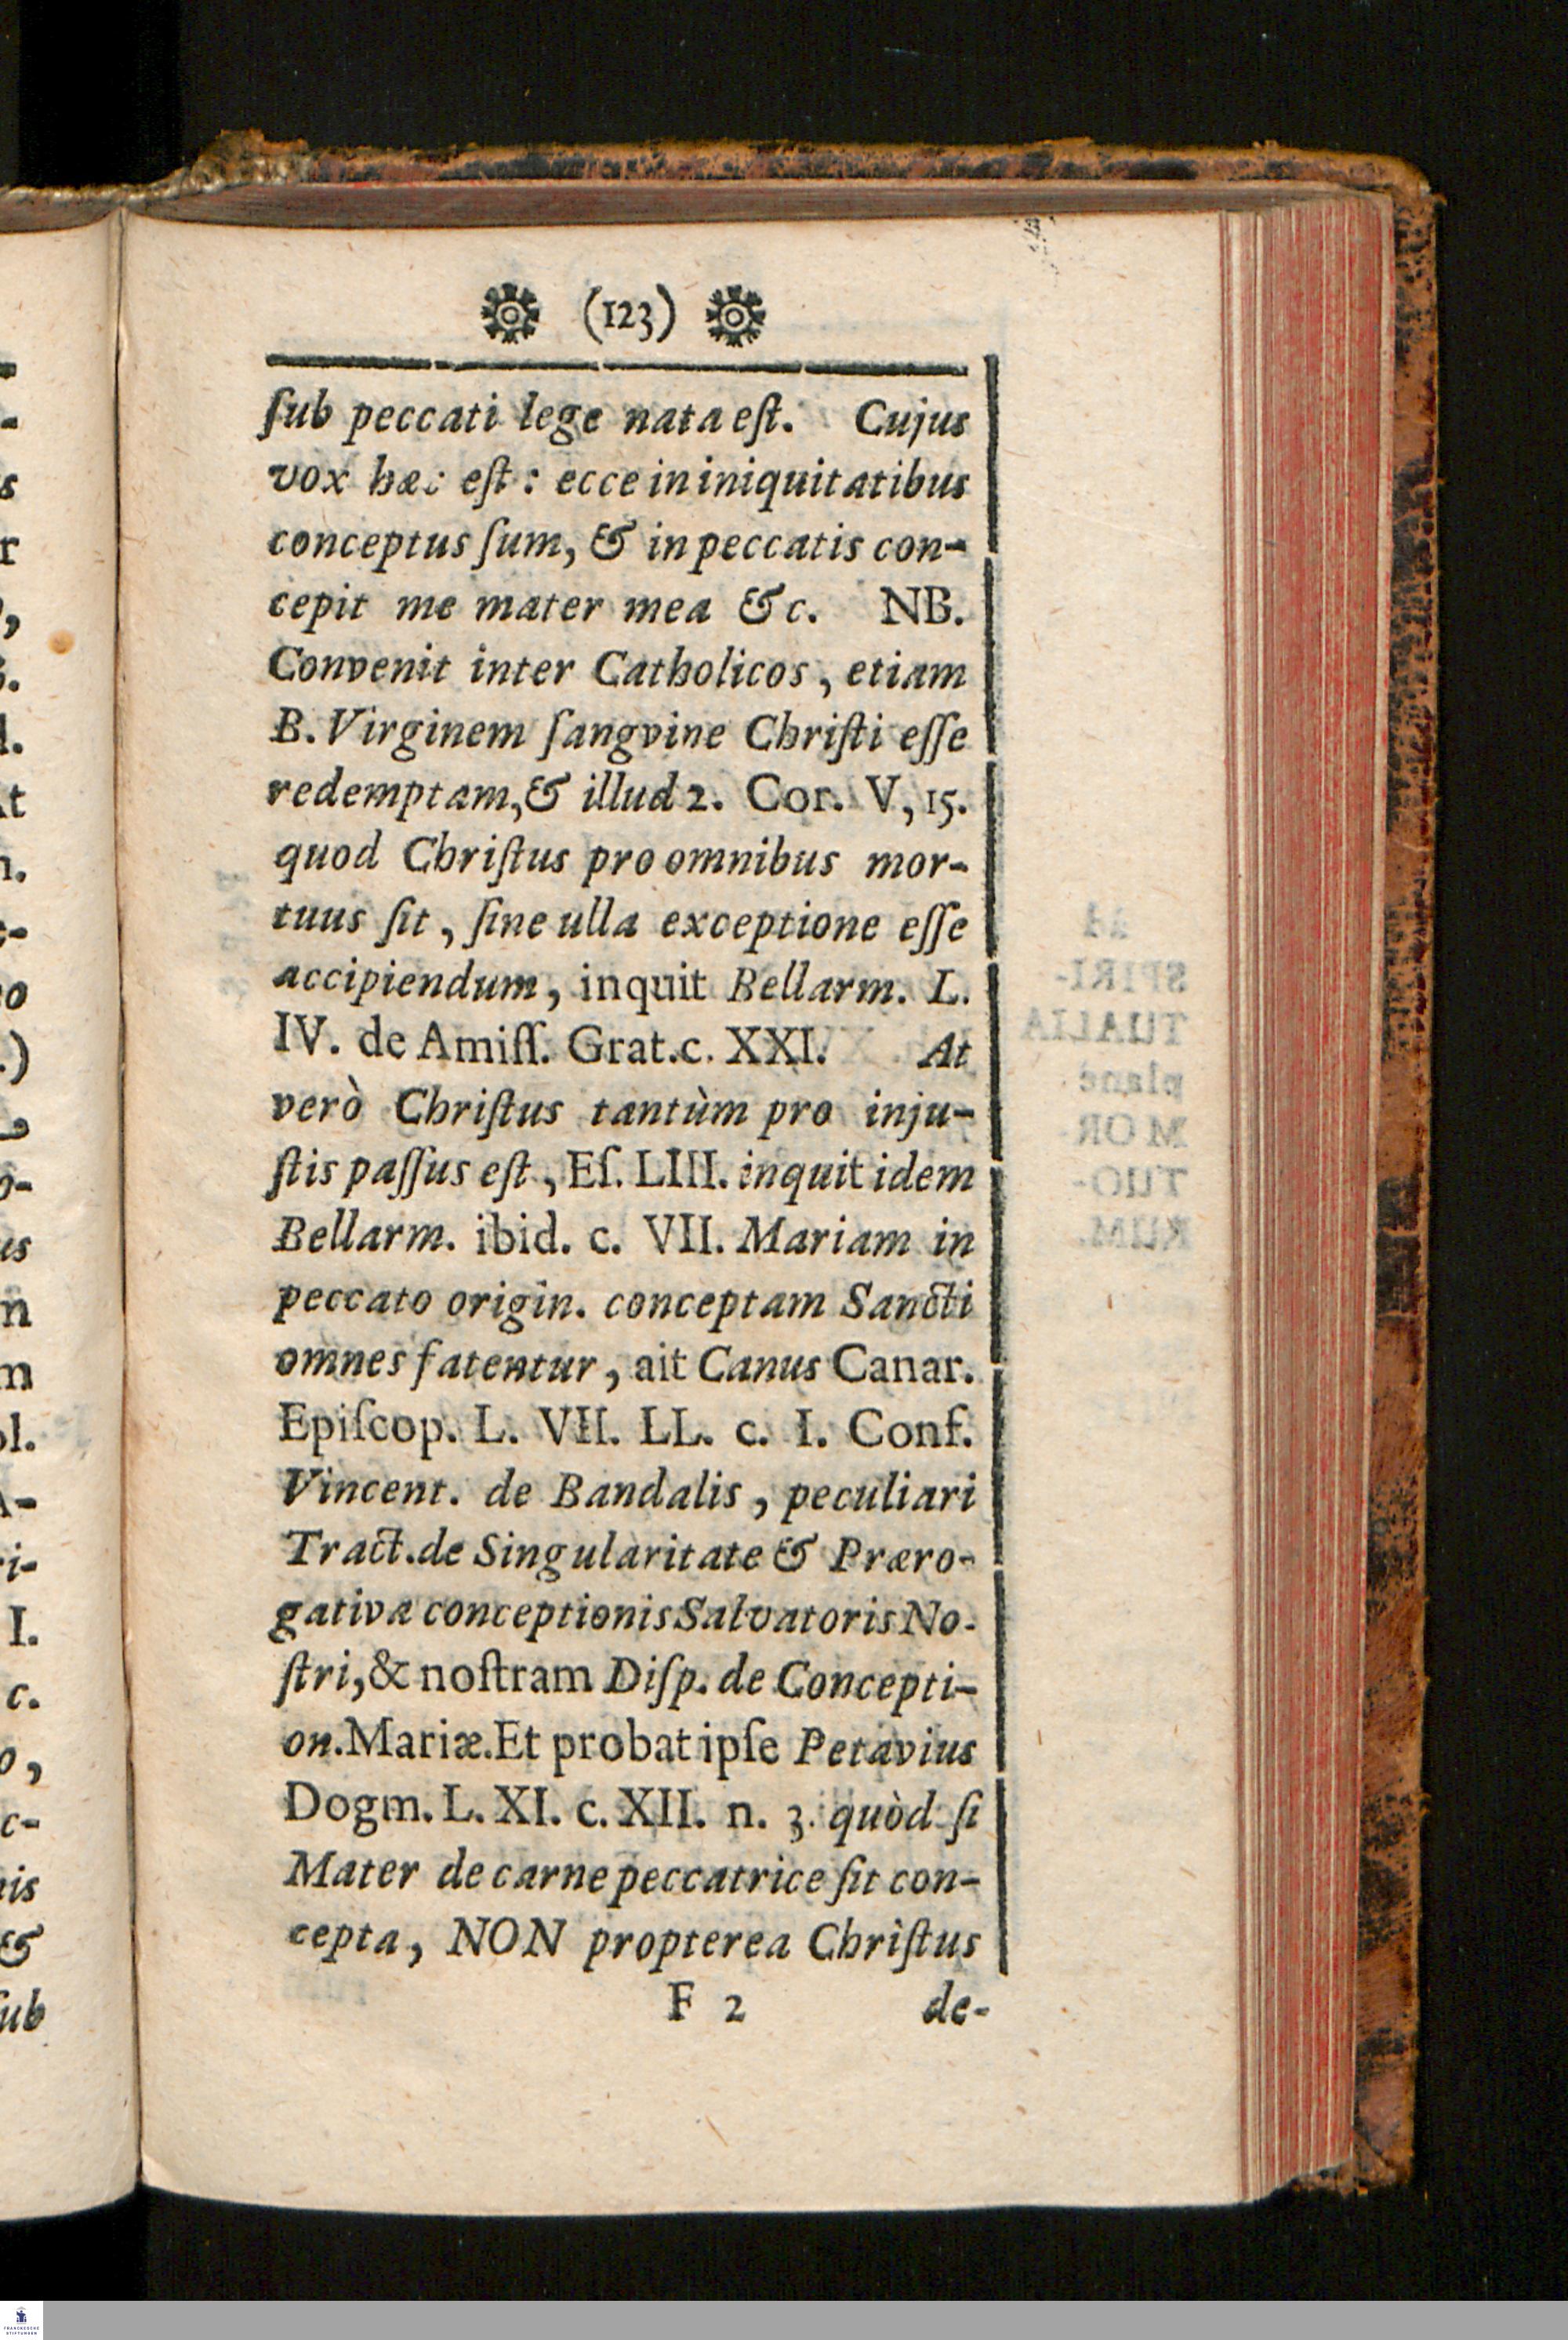 (123)
ſub peccati lege nata eſt. Cujus
vox hæc eſt: ecce in iniquitatibus
conceptus ſum, & in peccatis con-
cepit me mater mea &c. NB.
Convenit inter Catholicos, etiam
B. Virginem ſangvine Chriſti eſſe
redemptam, & illud 2. Cor. V, 15.
quod Chriſtus pro omnibus mor-
tuus ſit, ſine ulla exceptione eſſe
accipiendum, inquit Bellarm. L.
IV. de Amiſſ. Grat. c. XXI. At
verò Chriſtus tantùm pro inju-
ſtis paſſus eſt, Eſ. LIII. inquit idem
Bellarm. ibid. c. VII. Mariam in
peccato origin. conceptam Sancti
omnes fatentur, ait Canus Canar.
Epiſcop. L. VII. LL. c. I. Conf.
Vincent. de Bandalis, peculiari
Tract. de Singularitate & Præro-
gativa conceptionis Salvatoris No-
ſtri, & noſtram Diſp. de Concepti-
on. Mariæ. Et probat ipſe Petavius
Dogm. L. XI. c. XII. n. 3. quòd ſi
Mater de carne peccatrice ſit con-
cepta, NON propterea Chriſtus
F 2 de-
FRANCKESCHE
STIFTUNGEN